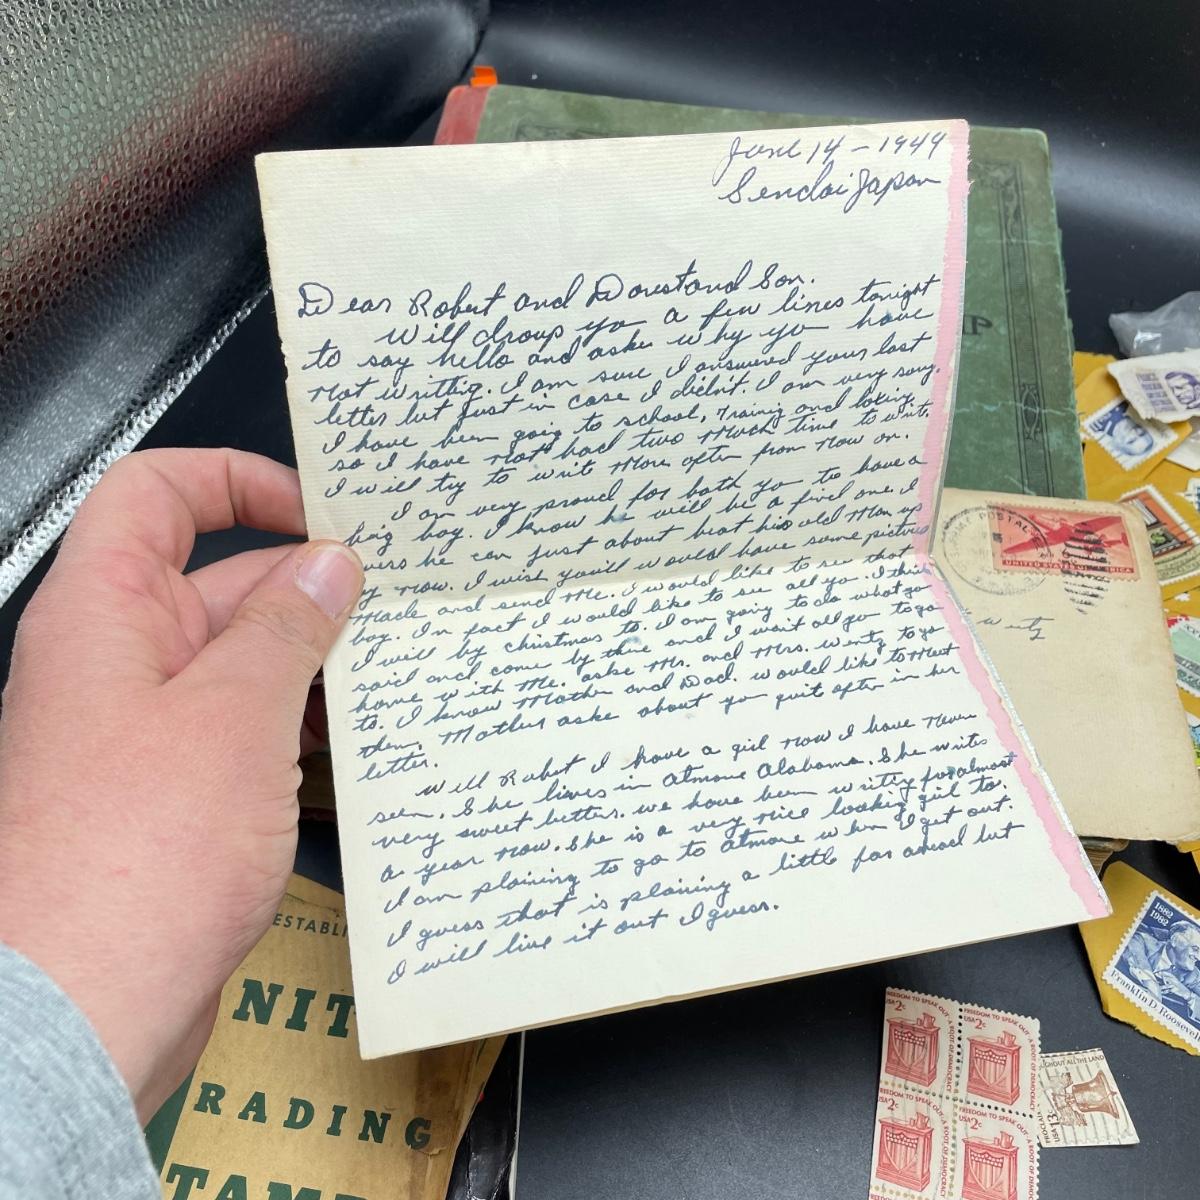 June 14 - 1949
Sendai Japan
Dear Robert and Dorest and Son.
Will droup yo a few lines tonight
to say hello and aske why yo have
not writting. I am sure I answered your last
letter but just in case I didn't. I am very sorry.
I have been going to school, training and
so I have not had two much time to writ.
I will try to writ more often from now on.
I am very proud for both yo to have a
boy. I know he will be a find one. I
he can just about beat his old man up
by now. I wish you'll would have some picture
made and send me. I would like to see that
boy. In fact I would like to see all yo. I think
I will by christmas to. I am going to do what yo
said and come by there and I wait all yo to go
home with me. aske Mr. and Mrs. Wentz to go
to. I know Mother and Dad. would like to meet
them. Mother aske about yo quit often in her
letter.
Will Robert I have a girl now I have never
seen. She lives in Atmore Alabama. She writes
very sweet letters. we have been writing for almost
a year now. She is a very nice looking girl to.
I am plaining to go to Atmore when I get out.
I guess that is plaining a little far ahead but
I will live it out I guess.
UNITED STATES OF AMERICA
Wentz
ESTABLI
NIT
RADING
TAMP
1882
1982
Franklin D. Roosevel
FREEDOM TO SPEAK OUT - A ROOT OF DEMOCRACY
USA 2c
FREEDOM TO SPEAK OUT - A ROOT OF DEMOCRACY
USA 2c
FREEDOM TO SPEAK OUT - A ROOT OF DEMOCRACY
USA 2c
FREEDOM TO SPEAK OUT - A ROOT OF DEMOCRACY
USA 2c
GHOUT ALL THE LAND
PROCLAI
USA 13c